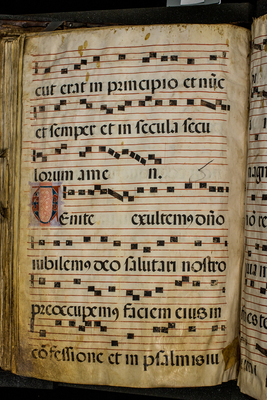 cut erat in principio et nũc
et semper et in secula secu
lorum ame n.
Uenite exultemꝰ dño
iubilemꝰ deo salutari nostro
preoccupemꝰ faciem eius in
cõfessione et in psalmis iu